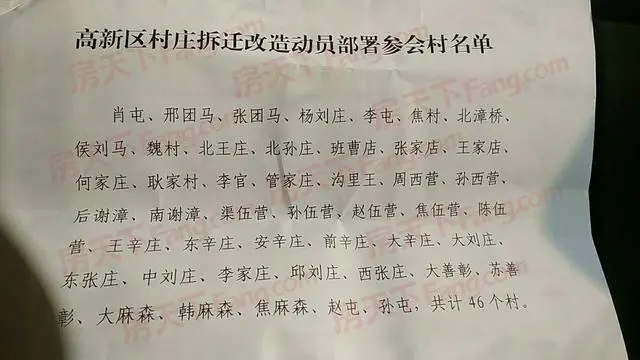 高新区村庄拆迁改造动员部署参会村名单
肖屯、邢团马、张团马、杨刘庄、李屯、焦村、北漳桥、
侯刘马、魏村、北王庄、北孙庄、班曹店、张家店、王家店、
何家庄、耿家村、李官、管家庄、沟里王、周西营、孙西营、
后谢漳、南谢漳、渠伍营、孙伍营、赵伍营、焦伍营、陈伍
营、王辛庄、东辛庄、安辛庄、前辛庄、大辛庄、大刘庄、
东张庄、中刘庄、李家庄、邱刘庄、西张庄、大善彰、苏善
彰、大麻森、韩麻森、焦麻森、赵屯、孙屯，共计46个村。
房天下Fang.com